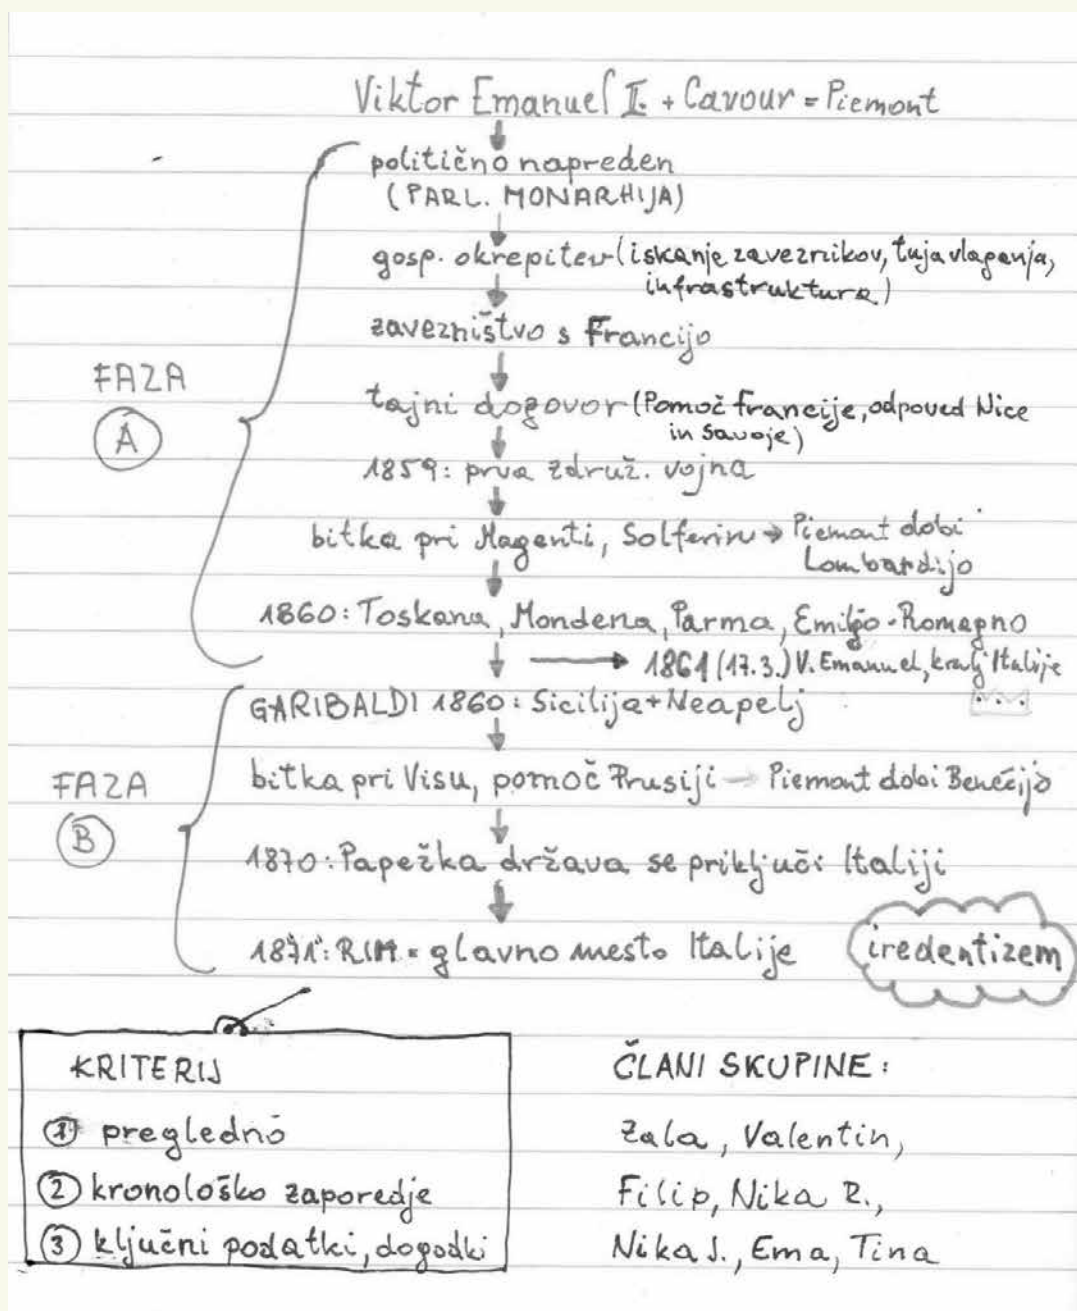 Viktor Emanuel II. + Cavour = Piemont
politično napreden
(PARL. MONARHIJA)
gosp. okrepitev (iskanje zaveznikov, tuja vlaganja,
infrastruktura)
zavezništvo s Francijo
FAZA
A
tajni dogovor (Pomoč Francije, odpoved Nice
in Savoje)
1859: prva združ. vojna
bitka pri Magenti, Solferinu → Piemont dobi
Lombardijo
1860: Toskana, Mondena, Parma, Emiljo-Romagno
→ 1861 (17.3.) V. Emanuel, kralj Italije
GARIBALDI 1860: Sicilija + Neapelj
FAZA
B
bitka pri Visu, pomoč Prusiji → Piemont dobi Benečijo
1870: Papežka država se priključi Italiji
1871: RIM = glavno mesto Italije
iredentizem
KRITERIJ
① pregledno
② kronološko zaporedje
③ ključni podatki, dogodki
ČLANI SKUPINE:
Zala, Valentin,
Filip, Nika R.,
Nika J., Ema, Tina